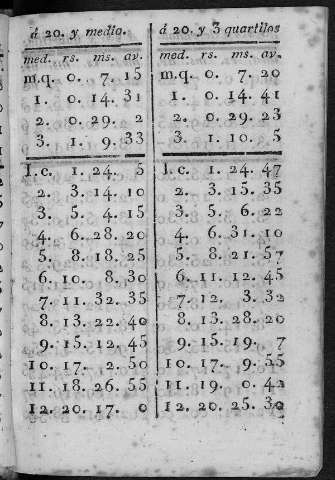 á 20. y medio.
med. rs. ms. av.
m.q. 0. 7. 15
1. 0. 14. 31
2. 0. 29. 2
3. 1. 9. 33
1. c. 1. 24. 5
2. 3. 14. 10
3. 5. 4. 15
4. 6. 28. 20
5. 8. 18. 25
6. 10. 8. 30
7. 11. 32. 35
8. 13. 22. 40
9. 15. 12. 45
10. 17. 2. 50
11. 18. 26. 55
12. 20. 17. 0
á 20. y 3 quartilos
med. rs. ms. av.
m.q. 0. 7. 20
1. 0. 14. 41
2. 0. 29. 23
3. 1. 10. 5
1. c. 1. 24. 47
2. 3. 15. 35
3. 5. 6. 22
4. 6. 31. 10
5. 8. 21. 57
6. 11. 12. 45
7. 12. 3. 32
8. 13. 28. 20
9. 15. 19. 7
10. 17. 9. 55
11. 19. 0. 42
12. 20. 25. 30